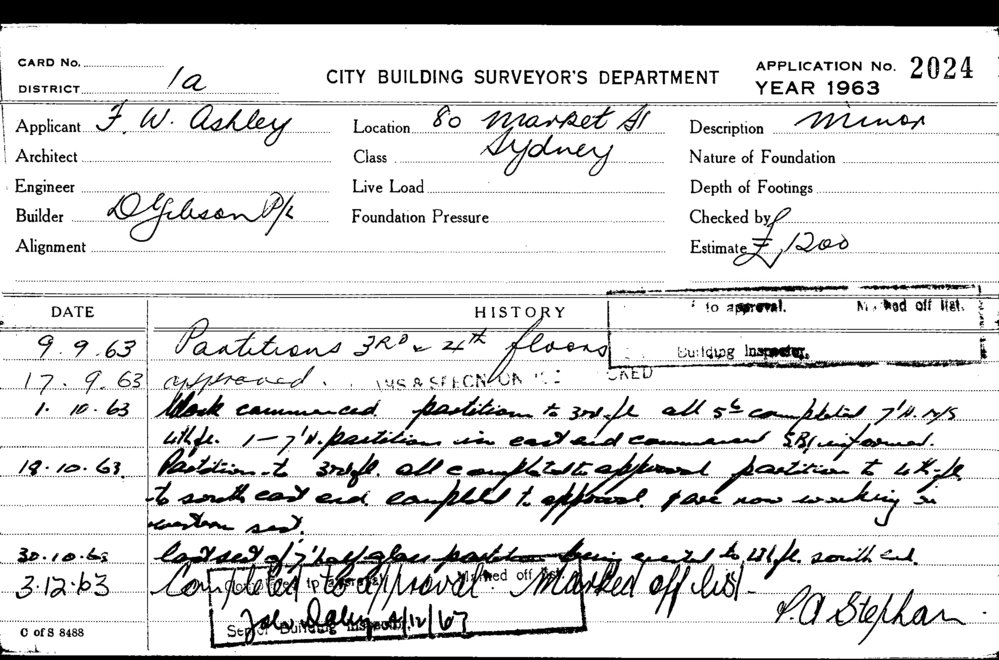 CARD No.
DISTRICT 1a
CITY BUILDING SURVEYOR'S DEPARTMENT
APPLICATION No. 2024
YEAR 1963
Applicant F. W. Ashley
Location 80 Market St
Sydney
Description Minor
Architect
Class
Nature of Foundation
Engineer
Live Load
Depth of Footings
Builder D Gibson P/L
Foundation Pressure
Checked by
Alignment
Estimate £1200
DATE HISTORY
to approval. Marked off list.
Building Inspector.
9.9.63 Partitions 3RD & 4th floors
17.9.63 approved.
1.10.63 Work commenced partitions to 3rd fl all completed 7'H.
4th fl. 1-7'H. partition in east end commenced informed.
18.10.63. Partition to 3rd fl. all completed to approval partition to 4th fl
to south east end completed to approval. & are now working in
western sect.
30.10.63 last sect of 7' half glass partition being erected to 4th fl. south end.
3.12.63 Completed to approval. Marked off list.
P.A Stephan
Completed to approval Marked off list.
/12/63
Senior Building Inspector
C of S 8488